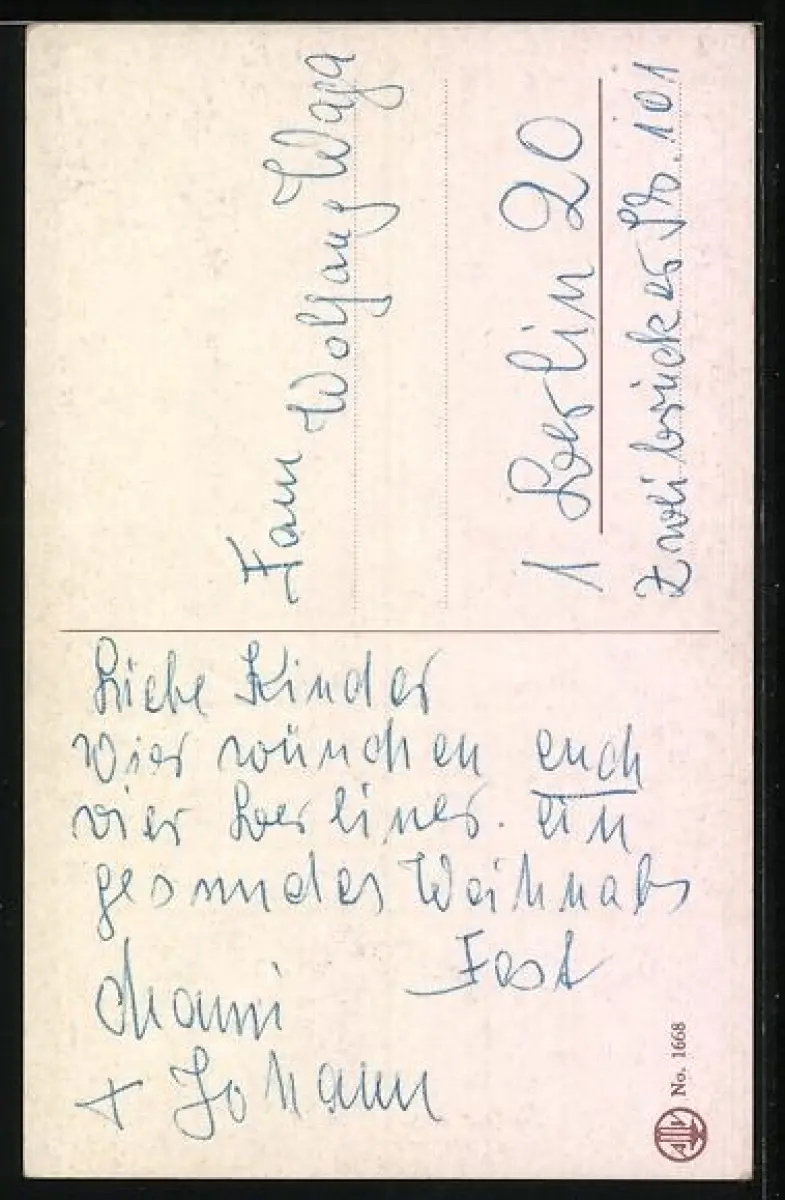 Fam Wolfgang Waga
1 Berlin 20
Zweibrücker Str. 101
Liebe Kinder
Wier wünchen euch
vier Berliner. ein
gesundes Weihnahs
Fest
Mami
+ Johann
No. 1668